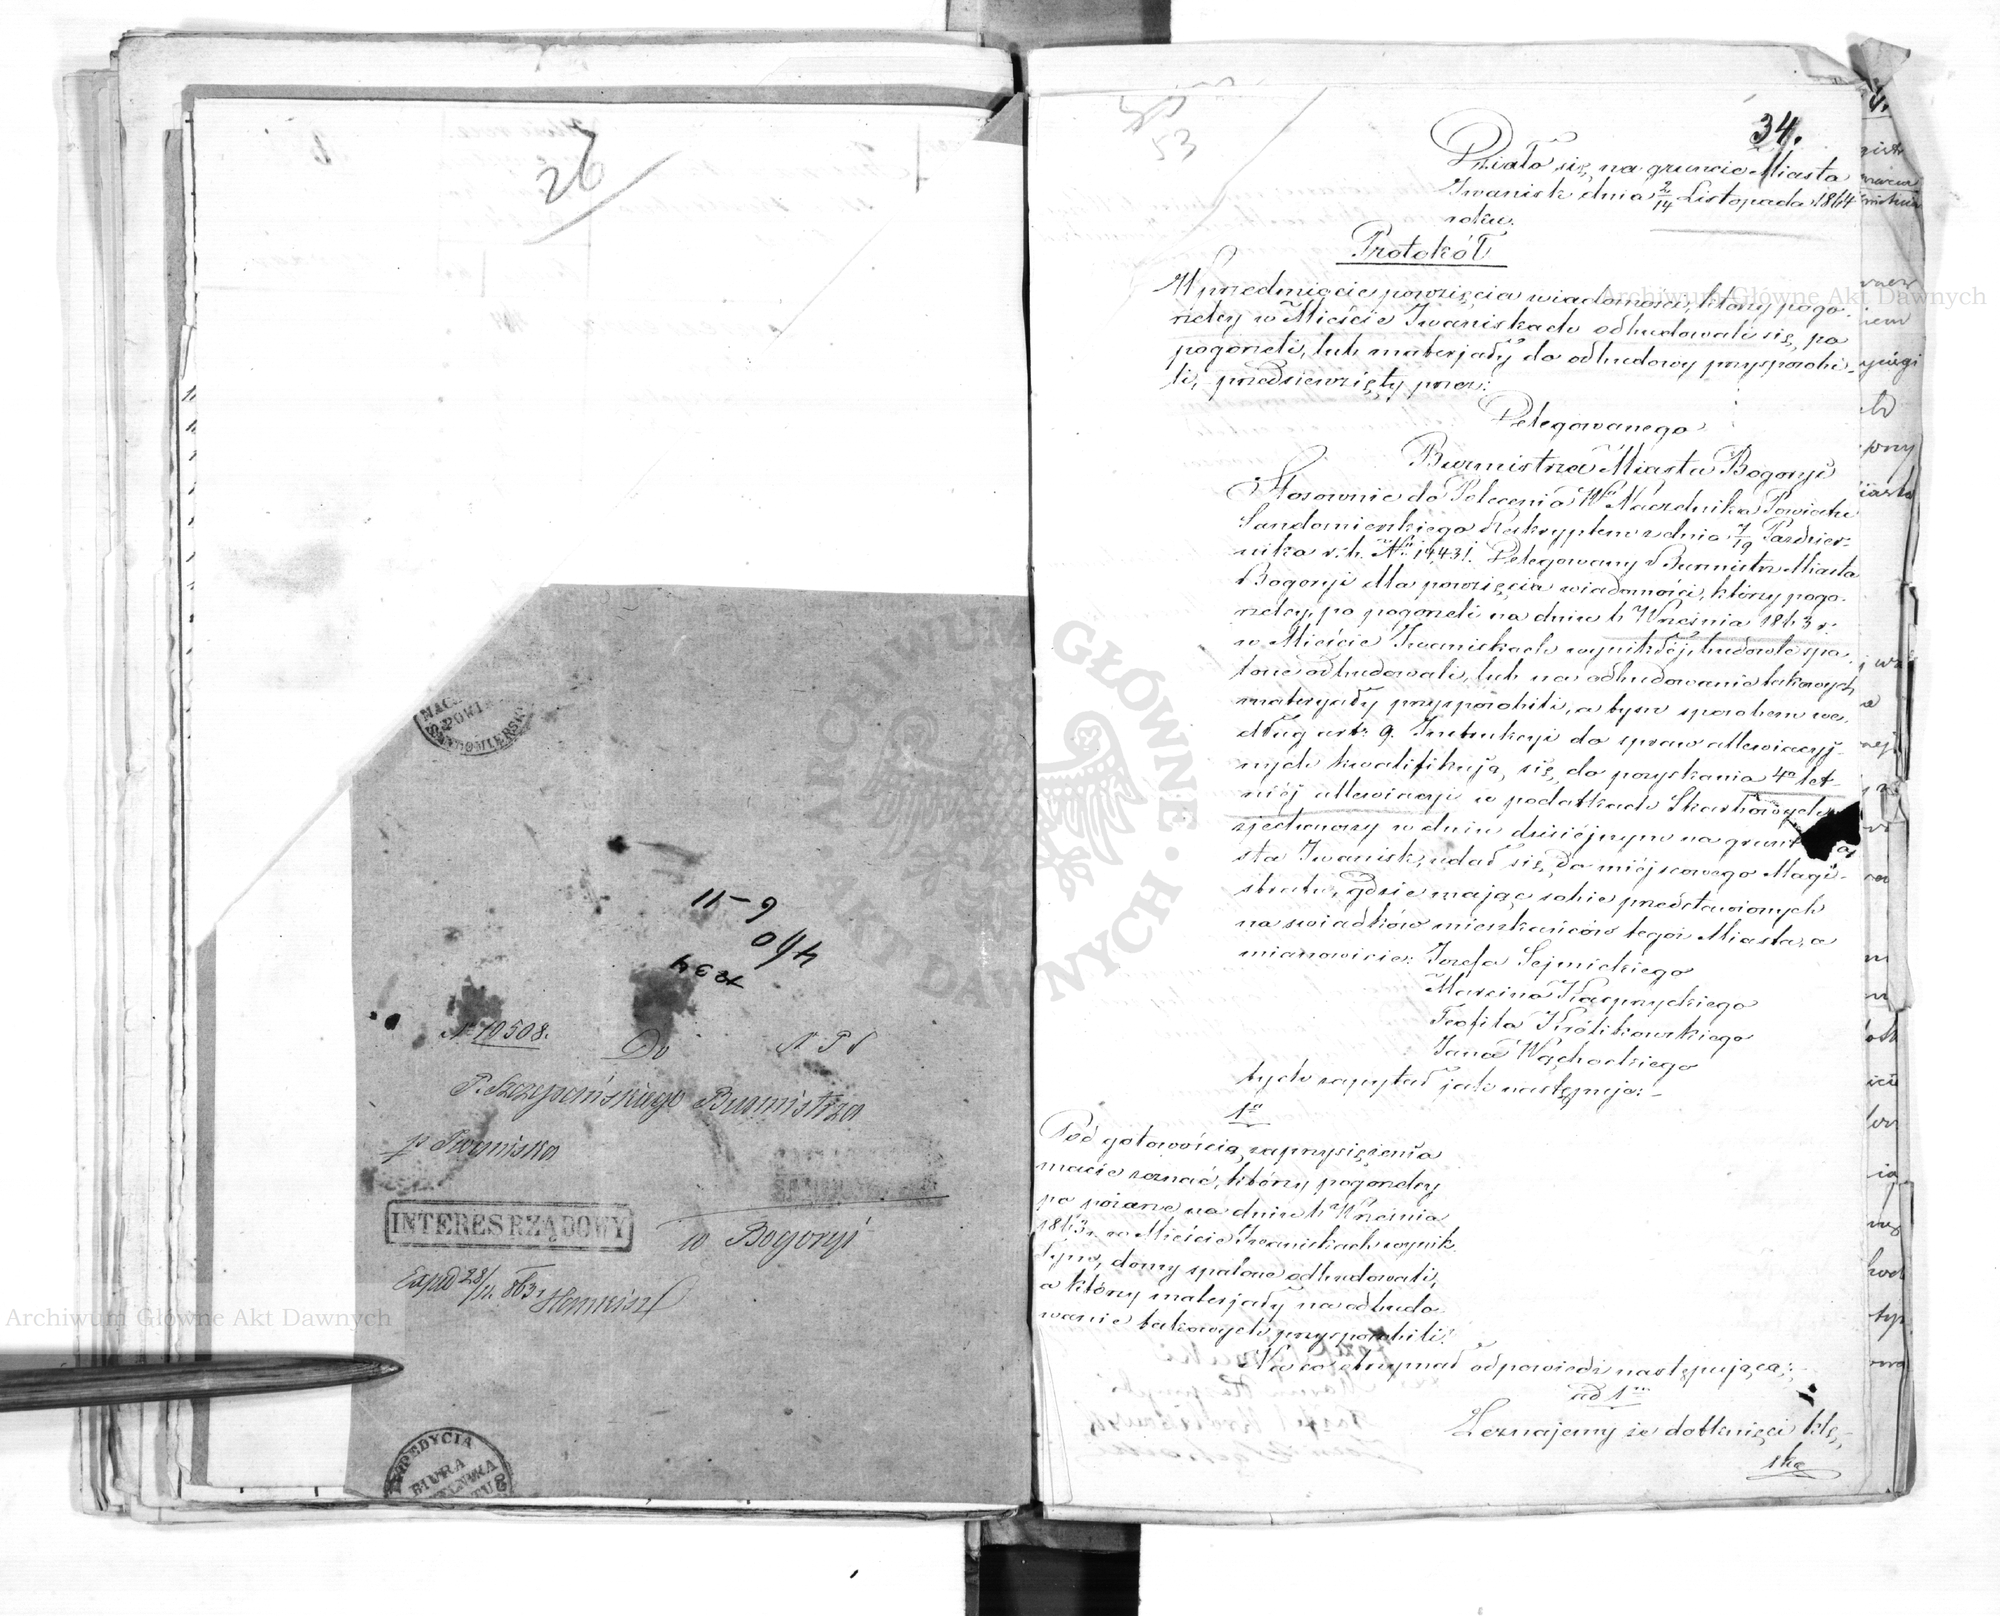 26
NACZ
POWI
SANDOMIERSK
6-11
4/60
7234
№ 10508.
Do N P S
P. Szczepańskiego Burmistrza
p Iwaniska
INTERES RZĄDOWY
w Bogoryi
Exped 28/11 863
EXPEDYCIA
BIURA
53
34.
Działo się na gruncie Miasta
Iwanisk dnia 2/14 Listopada 1864
roku.
Protokół
W przedmiocie powzięcia wiadomości, którzy pogo-
rzelcy w Mieście Iwaniskach odbudowali się, po
pogorzeli, lub materjały do odbudowy przysposobi-
li, przedsiewzięty przez:
Delegowanego
Burmistrza Miasta Bogoryi
Stosownie do Polecenia Wo Naczelnika Powiatu
Sandomierskiego Reskryptem z dnia 7/19 Paździer-
nika r. b. No 14431. Delegowany Burmistrz Miasta
Bogoryi dla powzięcia wiadomości, którzy pogo-
rzelcy, po pogorzeli na dniu 6 Września 1863 r.
w Mieście Iwaniskach wynikłéj, budowle spa-
lone odbudowali, lub na odbudowanie takowych
materyały przysposobili, a tym sposobem we-
dług art: 9. Instrukcyi do spraw allewiacyj-
nych kwalifikują się do pozyskania 4o let-
niéj allewiacyi w podatkach Skarbowych,
zjechawszy w dniu dzisiéjszym na grunt
sta Iwanisk, udał się do miéjscowego Magi-
stratu, gdzie mając sobie przedstawionych
na swiadków mieszkańców tegoż Miasta, a
mianowicie: Józefa Sejmickiego
Marcina Kacprzyckiego
Teofila Królikowskiego
Jana Wąchockiego
tych zapytał jak następuje:
1o
Pod gotowością zaprzysiężenia
macie zeznać, którzy pogorzelcy
po pożarze na dniu 6 Września
1863 r. w Mieście Iwaniskach wynik-
łym, domy spalone odbudowali,
a którzy materjały na odbudo-
wanie takowych przysposobili?
Na co otrzymał odpowiedź następującą:
ad 1m
Zeznajemy że dotknięci klę-
ską
Archiwum Główne Akt Dawnych
ARCHIWUM GŁÓWNE
AKT DAWNYCH
Archiwum Główne Akt Dawnych